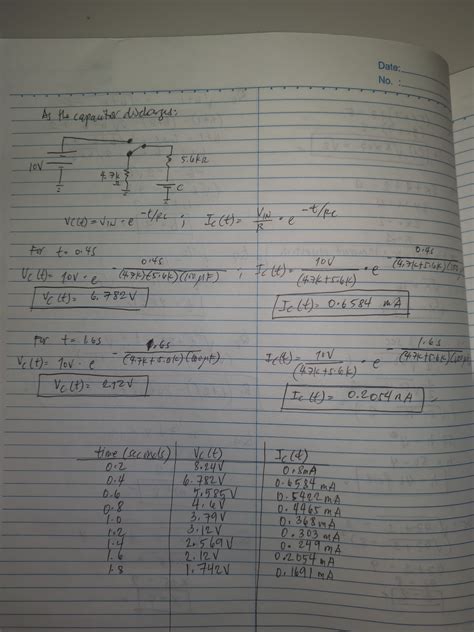 Date:
No. :
As the capacitor discharges:
10V 4.7k 5.6kΩ C
Vc(t) = VIN · e^-t/RC ; Ic(t) = VIN/R · e^-t/RC
For t = 0.4s
Vc(t) = 10V · e^-0.4s/(4.7k)(5.6k)(100μF) ; Ic(t) = 10V/(4.7k+5.6k) · e^-0.4s/(4.7k+5.6k)(100
Vc(t) = 6.782V Ic(t) = 0.6584 mA
For t = 1.6s
Vc(t) = 10V · e^-1.6s/(4.7k+5.6k)(100μF) Ic(t) = 10V/(4.7k+5.6k) · e^-1.6s/(4.7k+5.6k)(100
Vc(t) = 2.12V Ic(t) = 0.2054mA
time (seconds) Vc(t) Ic(t)
0.2 8.24V 0.8mA
0.4 6.782V 0.6584 mA
0.6 5.585V 0.5422 mA
0.8 4.6V 0.4465 mA
1.0 3.79V 0.368mA
1.2 3.12V 0.303 mA
1.4 2.569V 0.249 mA
1.6 2.12V 0.2054 mA
1.8 1.742V 0.1691 mA